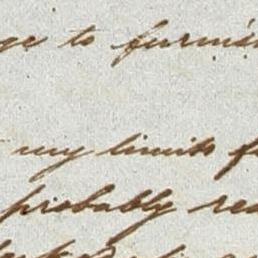 to furnis
my limits f
probably rea